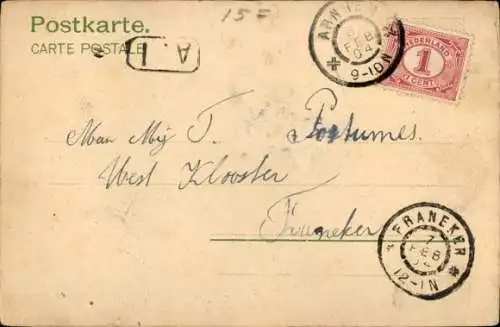 Postkarte.
CARTE POSTALE
15=
A.I
ARNHEM
FEB
04
9-10N
NEDERLAND
1
CENT
Man Mej T. Postumes.
West Klooster
Franeker
FRANEKER
7
FEB
04
12-1N